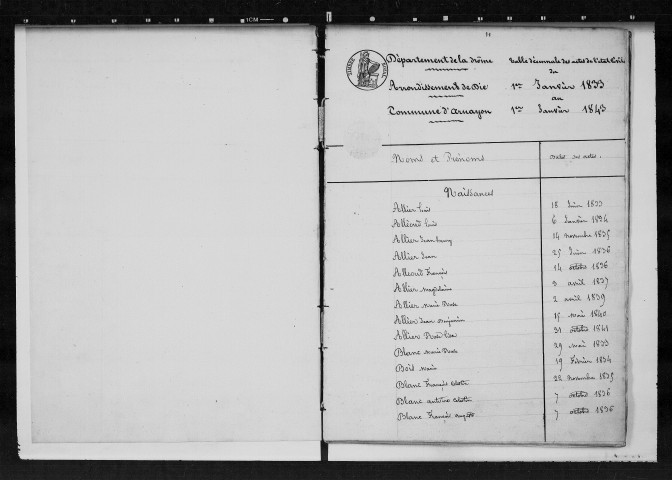 1CM
Département de la drôme Table décennale des actes de l'état Civil
du
Arrondissement de Die 1er Janvier 1833
au
Commune d'Arnayon 1er Janvier 1843
Noms et Prénoms Dates des actes.
Naissances
Allier Louis 18 Juin 1833
Louis 6 Janvier 1834
Allier Jean 14 novembre 1835
Allier Jean 25 Juin 1836
François 14 octobre 1836
Allier magdelaine 3 avril 1837
Allier marie Rose 2 avril 1839
Allier Jean Benjamin 15 mai 1840
Allier Rose 31 octobre 1841
Blanc marie Rose 29 mai 1833
marie 19 Février 1834
Blanc François 22 novembre 1835
Blanc antoine 7 octobre 1836
Blanc François auguste 7 octobre 1836